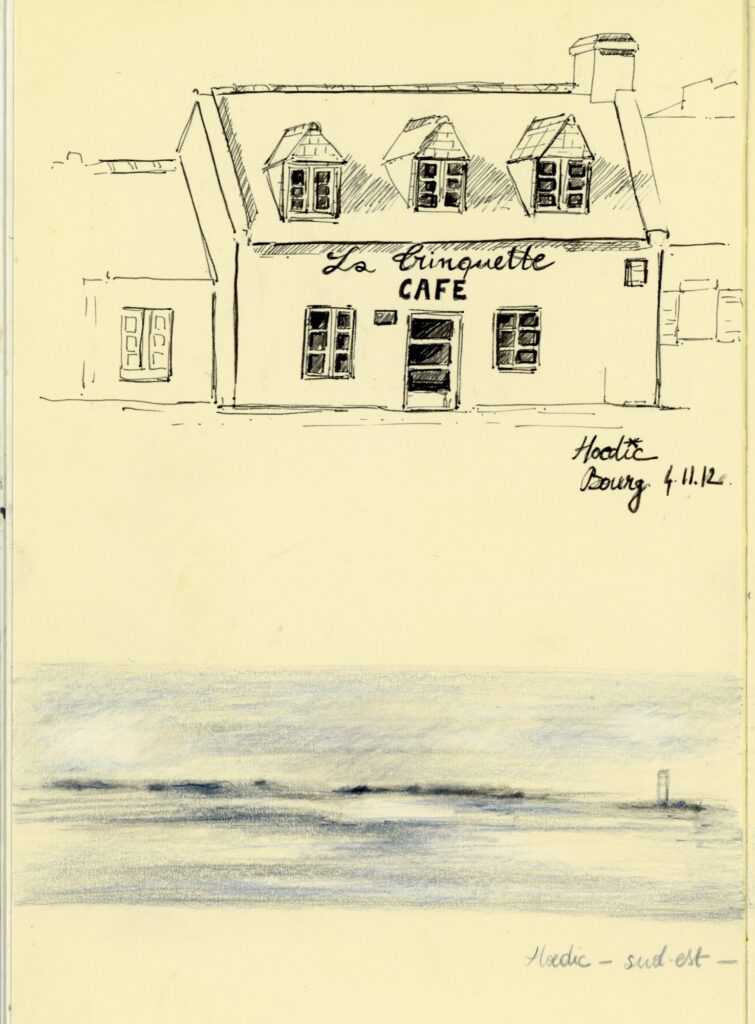 La Trinquette
CAFE
Hoedic
Bourg 4.11.12.
Hœdic – sud-est –